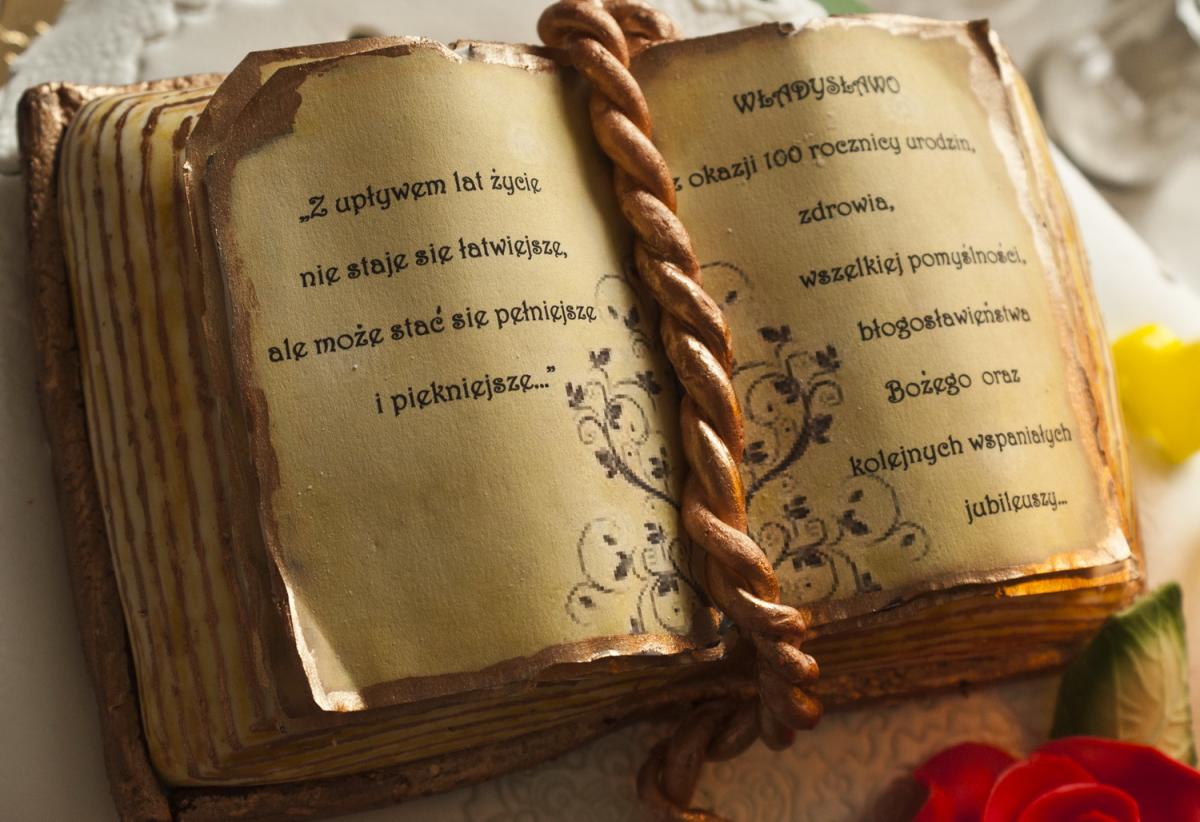 „Z upływem lat życie
nie staje się łatwiejsze,
ale może stać się pełniejsze
i piękniejsze..."
WŁADYSŁAWO
z okazji 100 rocznicy urodzin,
zdrowia,
wszelkiej pomyślności,
błogosławieństwa
Bożego oraz
kolejnych wspaniałych
jubileuszy...